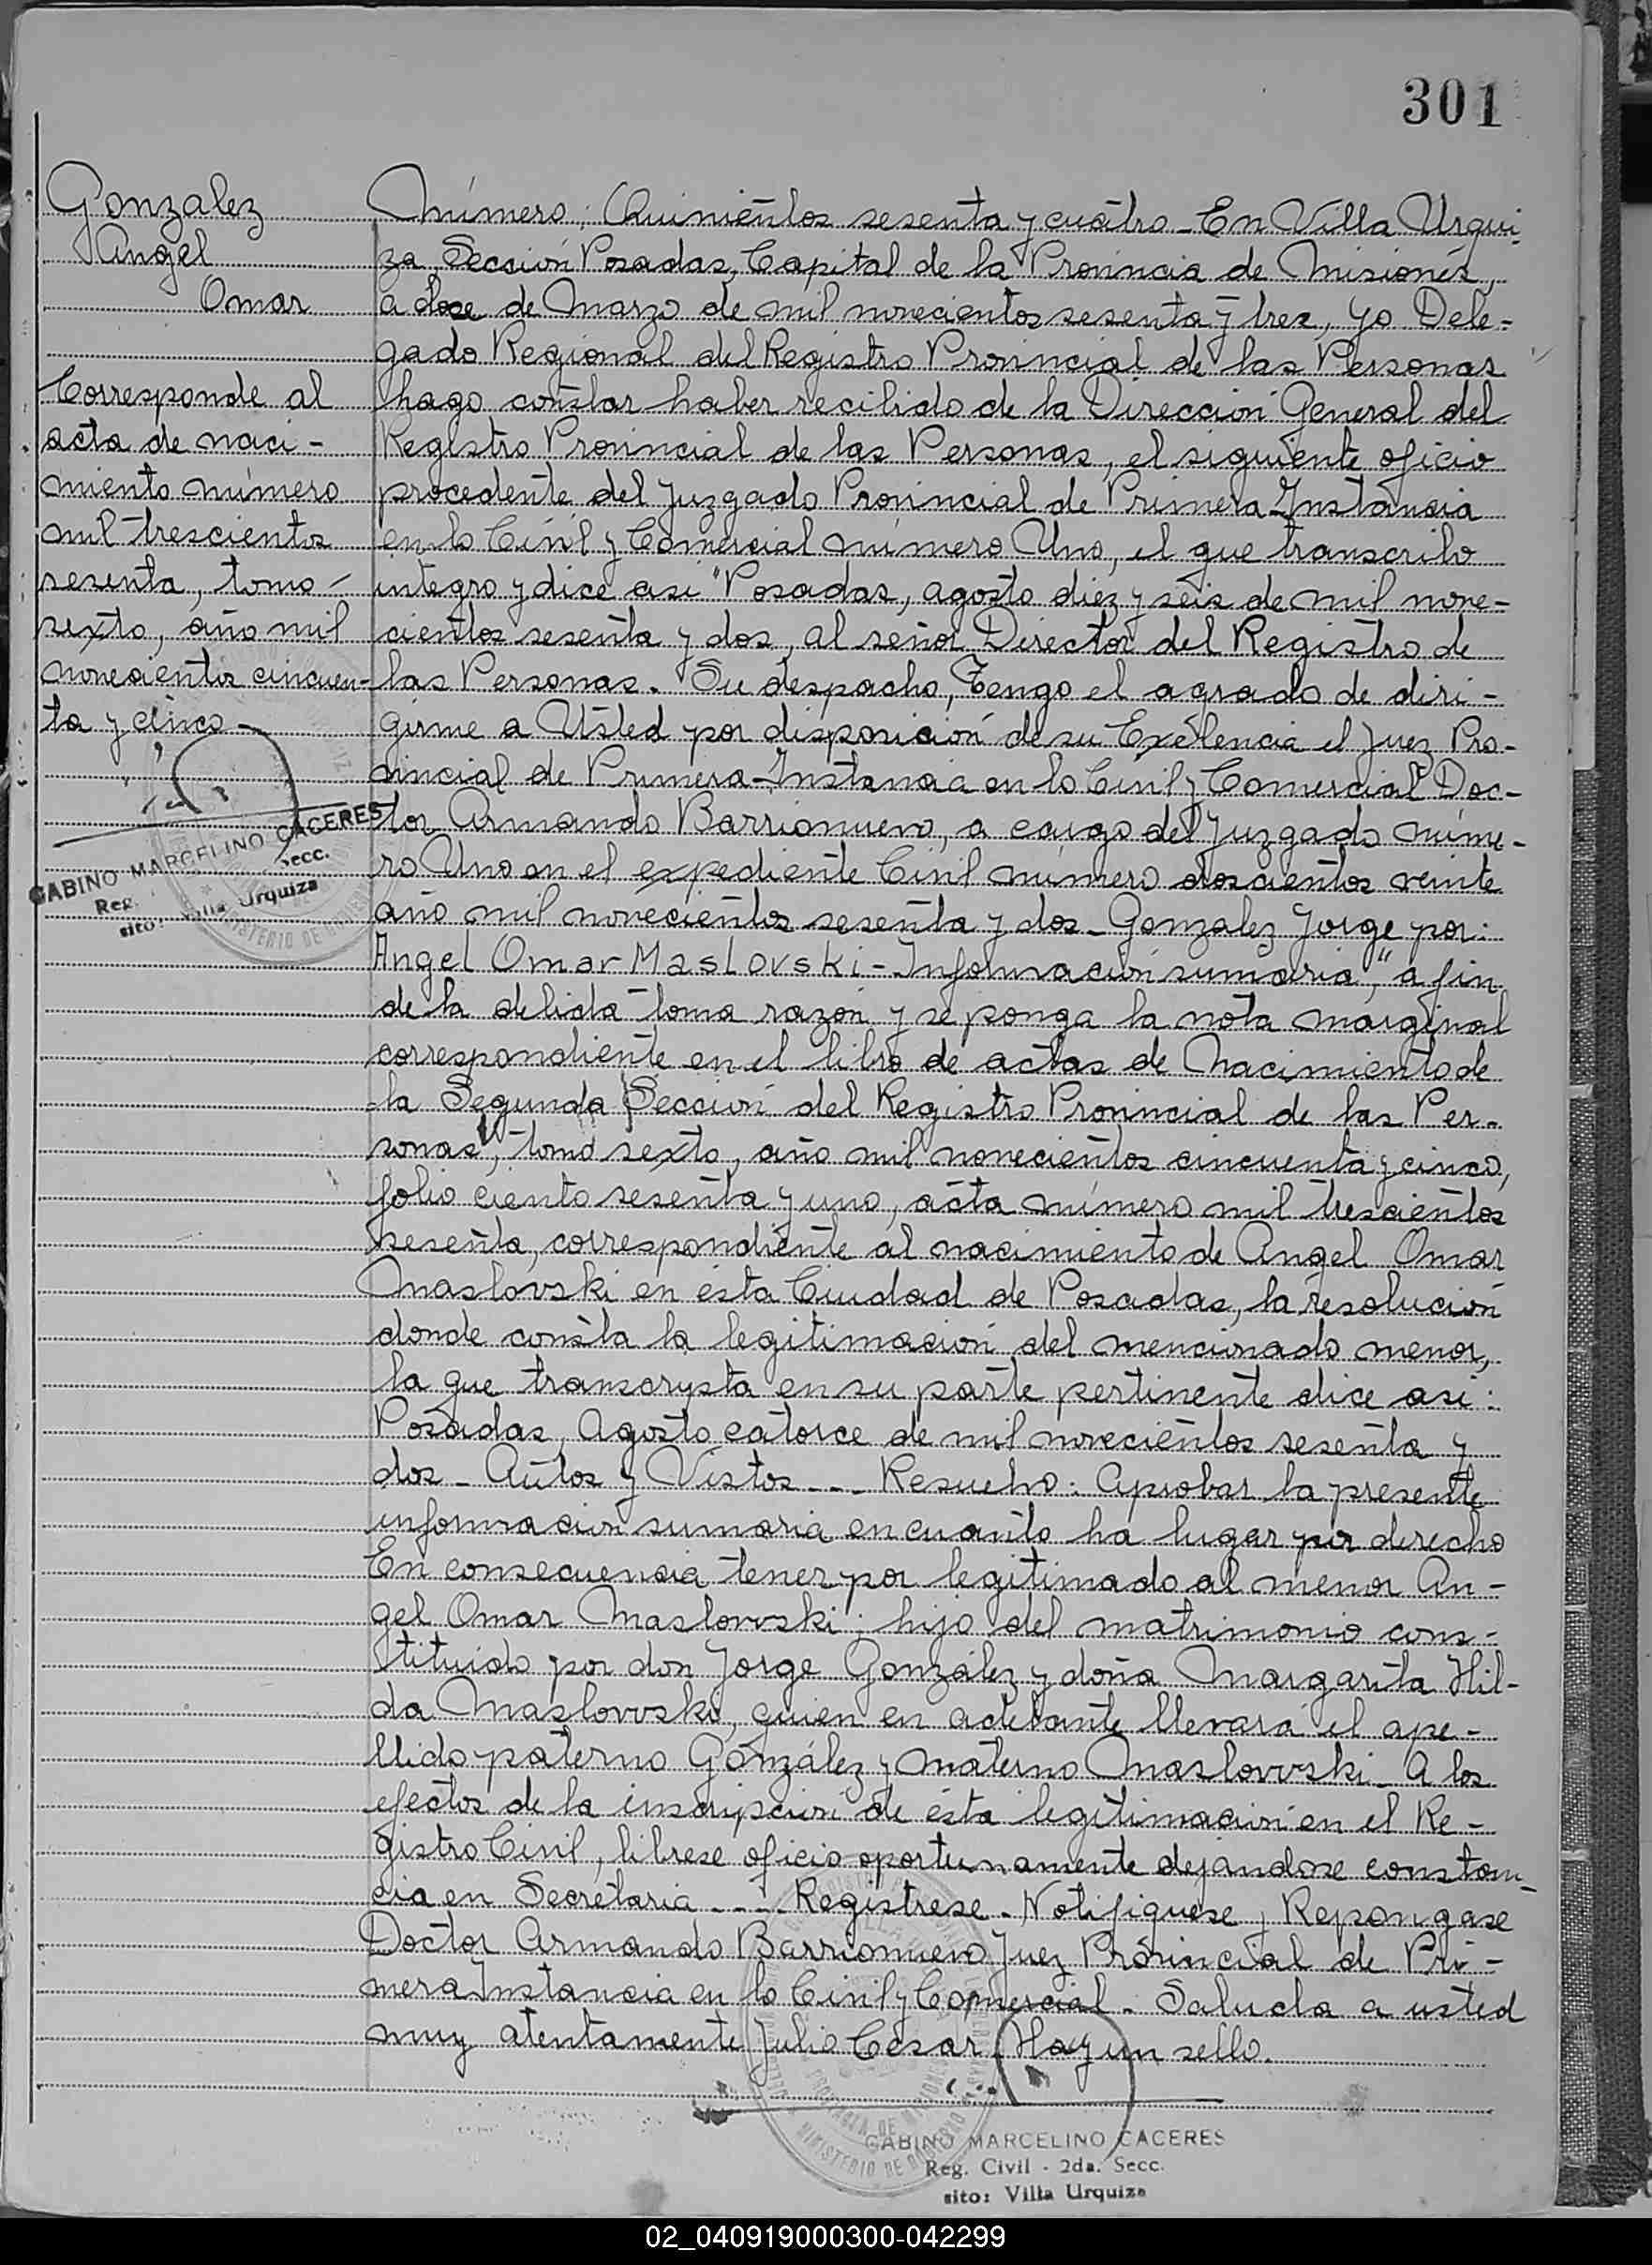 301
Gonzalez
Angel
Omar
Corresponde al
acta de naci-
miento número
mil trescientos
sesenta, tomo-
sexto, año mil
novecientos cincuen-
ta y cinco-
GABINO MARCELINO CACERES
Reg. Secc.
sito: Villa Urquiza
Número: Quinientos sesenta y cuatro - En Villa Urqui-
za, Sección Posadas, Capital de la Provincia de Misiones,
a doce de Marzo de mil novecientos sesenta y tres, yo Dele-
gado Regional del Registro Provincial de las Personas
hago constar haber recibido de la Dirección General del
Registro Provincial de las Personas, el siguiente oficio
procedente del Juzgado Provincial de Primera Instancia
en lo Civil y Comercial número Uno, el que transcribo
integro y dice asi "Posadas, agosto diez y seis de mil nove-
cientos sesenta y dos, al señor Director del Registro de
las Personas. Su despacho, Tengo el agrado de diri-
girme a Usted por disposición de su Exelencia el Juez Pro-
vincial de Primera Instancia en lo Civil y Comercial Doc-
tor Armando Barrionuevo, a cargo del Juzgado núme-
ro Uno en el expediente Civil número doscientos veinte
año mil novecientos sesenta y dos - Gonzalez Jorge por:
Angel Omar Maslovski - Información sumaria," a fin
de la debida toma razón y se ponga la nota marginal
correspondiente en el libro de actas de Nacimiento de
la Segunda Sección del Registro Provincial de las Per-
sonas, tomo sexto, año mil novecientos cincuenta y cinco,
folio ciento sesenta y uno, acta número mil trescientos
sesenta, correspondiente al nacimiento de Angel Omar
Maslovski en ésta Ciudad de Posadas, la resolución
donde consta la legitimación del mencionado menor,
la que transcrypta en su parte pertinente dice asi:
Posadas, Agosto catorce de mil novecientos sesenta y
dos - Autos y Vistos --- Resuelvo: Aprobar la presente
información sumaria en cuanto ha lugar por derecho
En consecuencia tener por legitimado al menor An-
gel Omar Maslovvski; hijo del matrimonio cons-
tituido por don Jorge González y doña Margarita Hil-
da Maslovvski, quien en adelante llevará el ape-
llido paterno González y materno Maslovvski - A los
efectos de la inscripción de ésta legitimación en el Re-
gistro Civil, librese oficio oportunamente dejandose constan-
cia en Secretaria ---- Registrese - Notifiquese y Repongase
Doctor Armando Barrionuevo Juez Provincial de Pri-
mera Instancia en lo Civil y Comercial - Saluda a usted
muy atentamente Julio Cesar. Hay un sello.
GABINO MARCELINO CACERES
Reg. Civil - 2da. Secc.
sito: Villa Urquiza
02_040919000300-042299